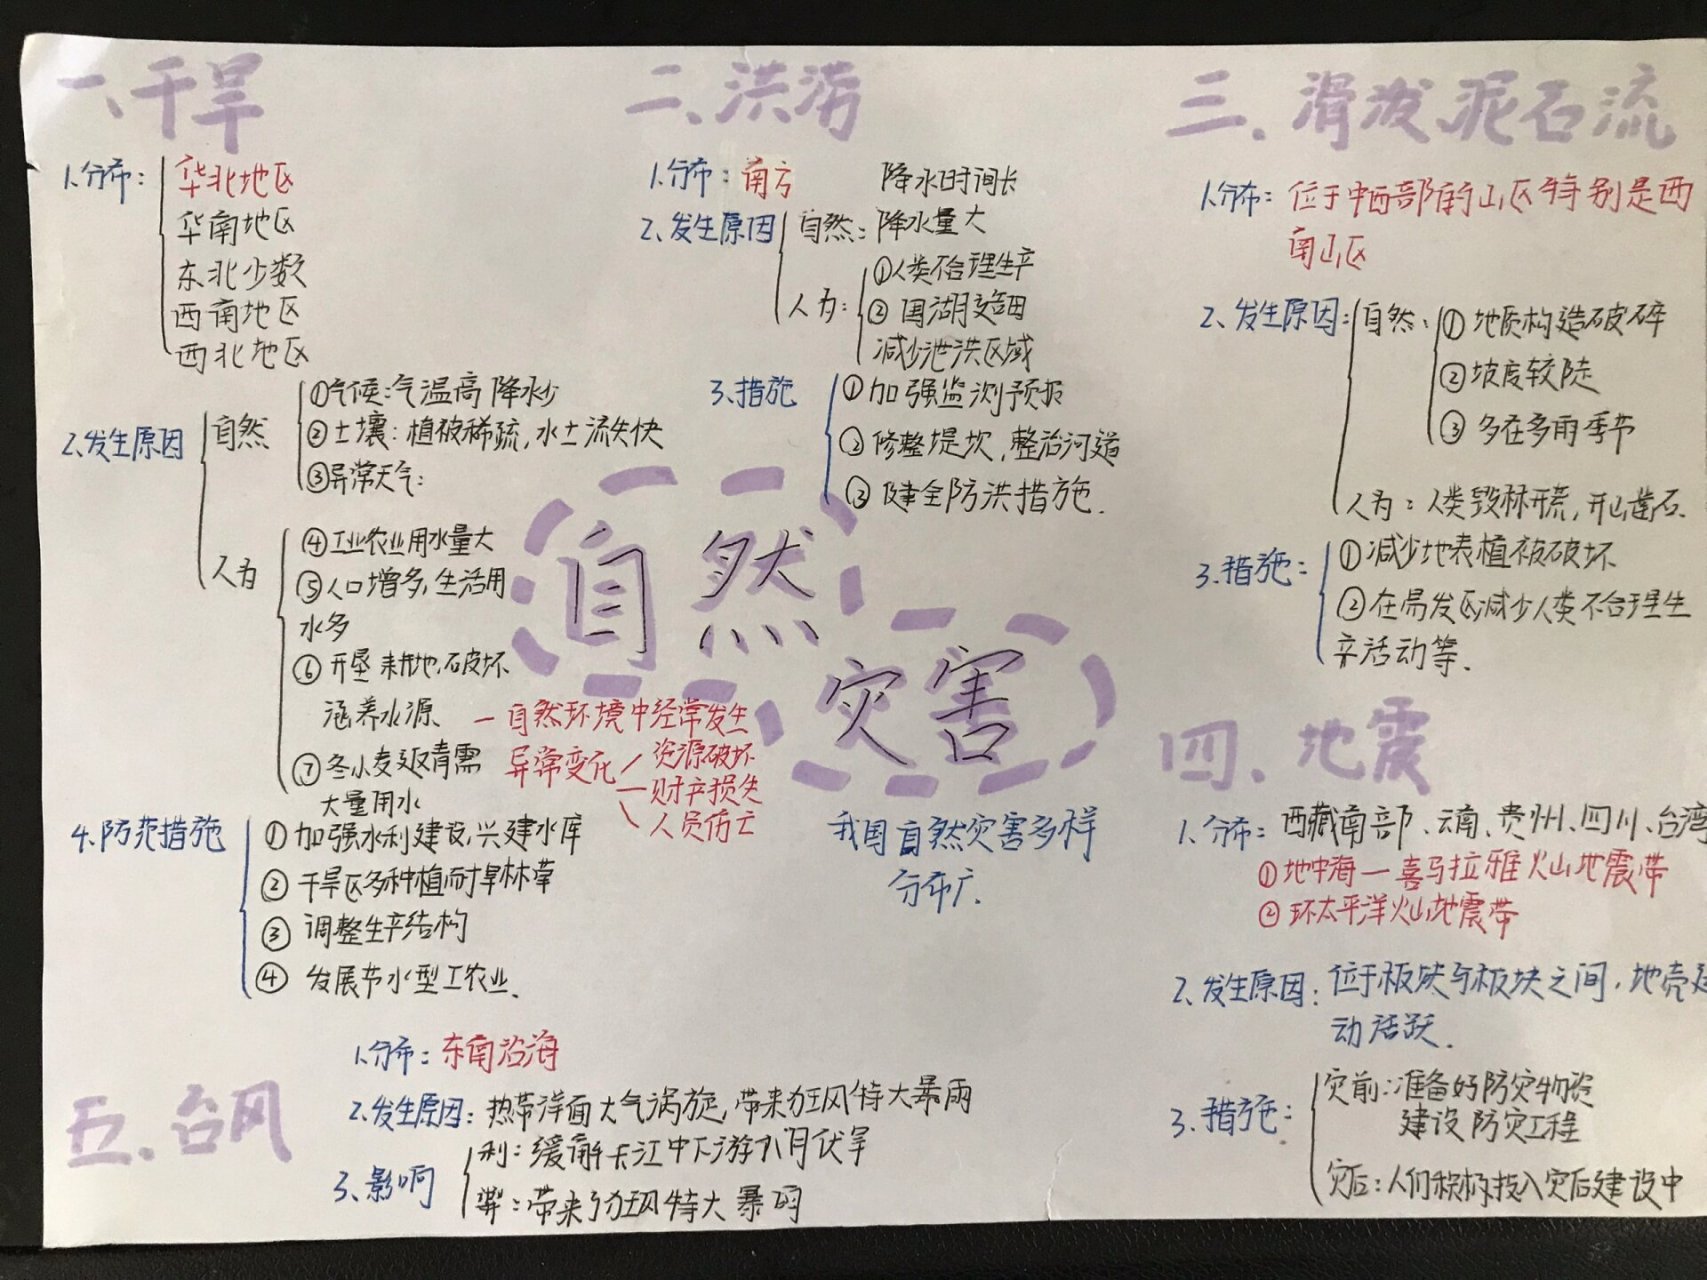 一、干旱
1.分布：
华北地区
华南地区
东北少数
西南地区
西北地区
2.发生原因
自然
①气候：气温高 降水少
②土壤：植被稀疏，水土流失快
③异常天气：
人为
④工业农业用水量大
⑤人口增多，生活用
水多
⑥开垦耕地，破坏
涵养水源、
⑦冬小麦返青需
大量用水
4.防范措施
①加强水利建设，兴建水库
②干旱区多种植耐旱林草
③调整生产结构
④发展节水型工农业、
二、洪涝
1.分布：南方
2、发生原因
降水时间长
自然：降水量大
人为：
①人类不合理生产
②围湖造田
减少泄洪区域
3.措施
①加强监测预报
②修整堤坎，整治河道
③健全防洪措施.
自然
灾害
一自然环境中经常发生
异常变化
资源破坏
财产损失
人员伤亡
我国自然灾害多样
分布广.
三、滑坡、泥石流
1.分布：位于中西部的山区特别是西
南山区
2、发生原因：
自然：
①地质构造破碎
②坡度较陡
③多在多雨季节
人为：人类毁林开荒，开山凿石.
3.措施：
①减少地表植被破坏
②在易发区减少人类不合理生
产活动等.
四、地震
1.分布：西藏南部、云南、贵州、四川、台湾
①地中海一喜马拉雅火山地震带
②环太平洋火山地震带
2、发生原因：位于板块与板块之间，地壳运
动活跃.
3.措施：
灾前：准备好防灾物资
建设防灾工程
灾后：人们积极投入灾后建设中
五、台风
1.分布：东南沿海
2.发生原因：热带洋面大气涡旋，带来狂风特大暴雨
3、影响
利：缓解长江中下游八月伏旱
弊：带来了狂风特大暴雨